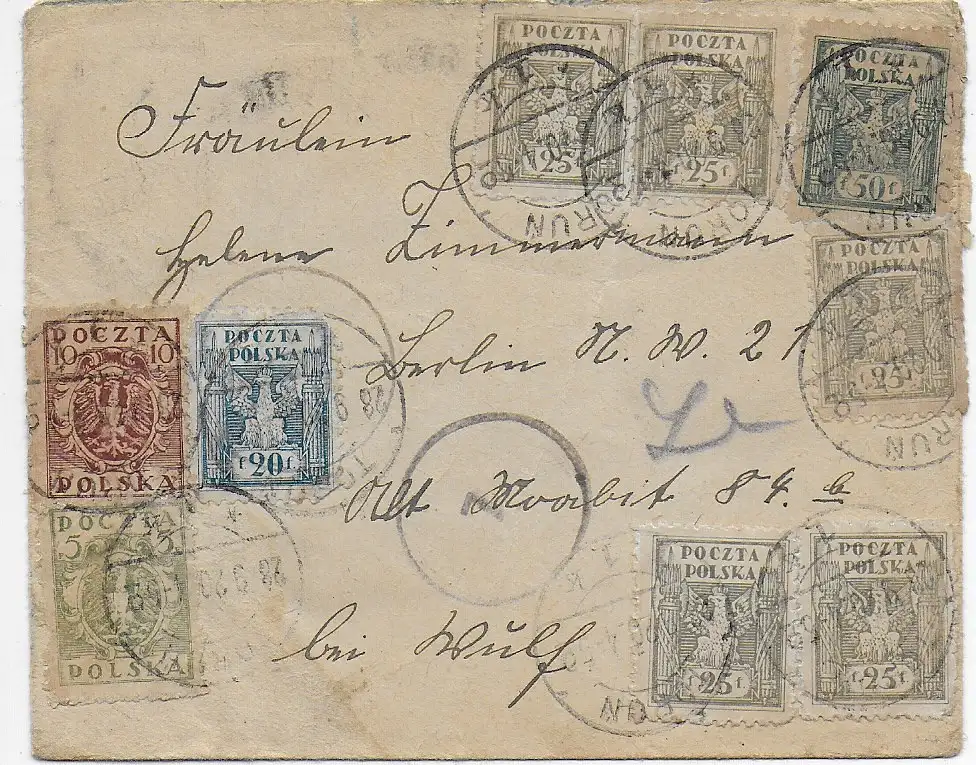 POCZTA
POLSKA
25 f
POCZTA
POLSKA
f 25 f
POCZTA
POLSKA
f 50 f
Fräulein
Helene Zimmermann
POCZTA
POLSKA
f 25 f
POCZTA
10 10
POLSKA
POCZTA
POLSKA
f 20 f
Berlin N. W. 21
Alt Moabit 84 b
POCZTA
5 5
POLSKA
POCZTA
POLSKA
f 25 f
POCZTA
POLSKA
f 25 f
bei Wulf
TORUN